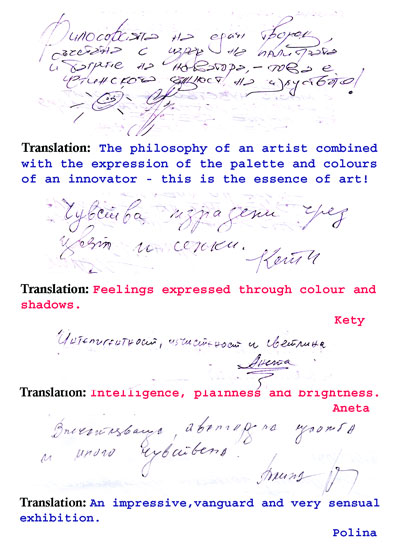 Философията на един творец,
съчетана с израз на палитрата
и багрите на новатора, - това е
същност на изкуството!
Translation: The philosophy of an artist combined
with the expression of the palette and colours
of an innovator - this is the essence of art!
Чувства изразени чрез
цвят и сенки.
Кети
Translation: Feelings expressed through colour and
shadows.
Kety
Интелигентност, изчистеност и светлина
Анета
Translation: Intelligence, plainness and brightness.
Aneta
Впечатляваща, авангардна изложба
и много чувствена.
Translation: An impressive,vanguard and very sensual
exhibition.
Polina